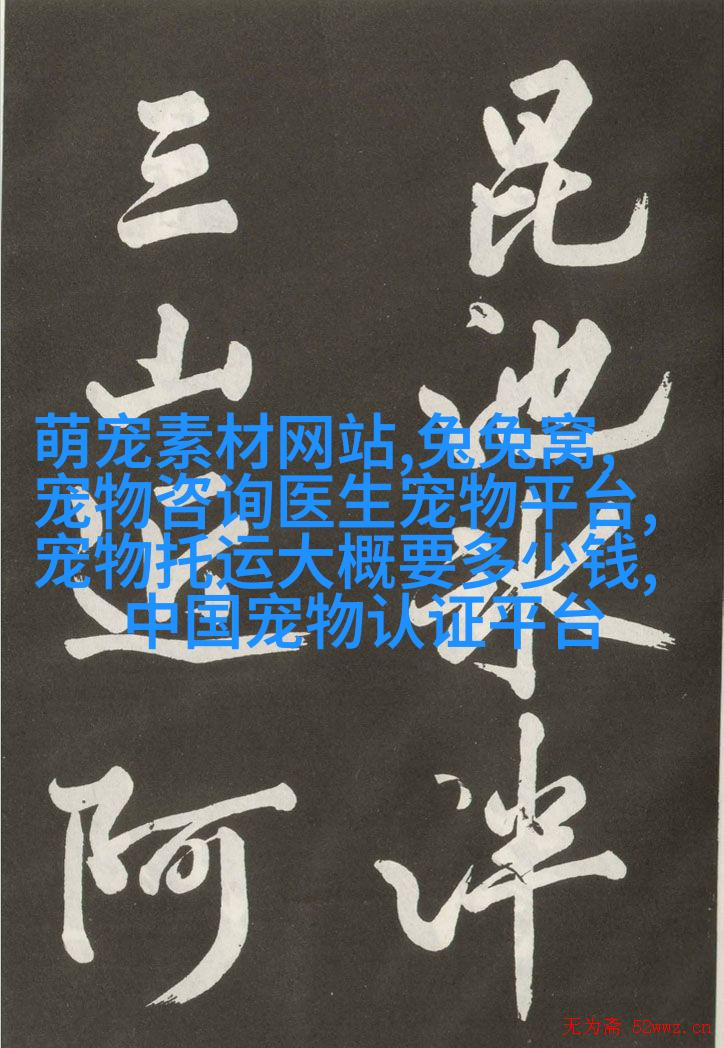 昆池水泮
三山阿
萌宠素材网站,兔兔窝,
宠物咨询医生宠物平台,
宠物托运大概要多少钱,
中国宠物认证平台
无为斋 52wwz.cn